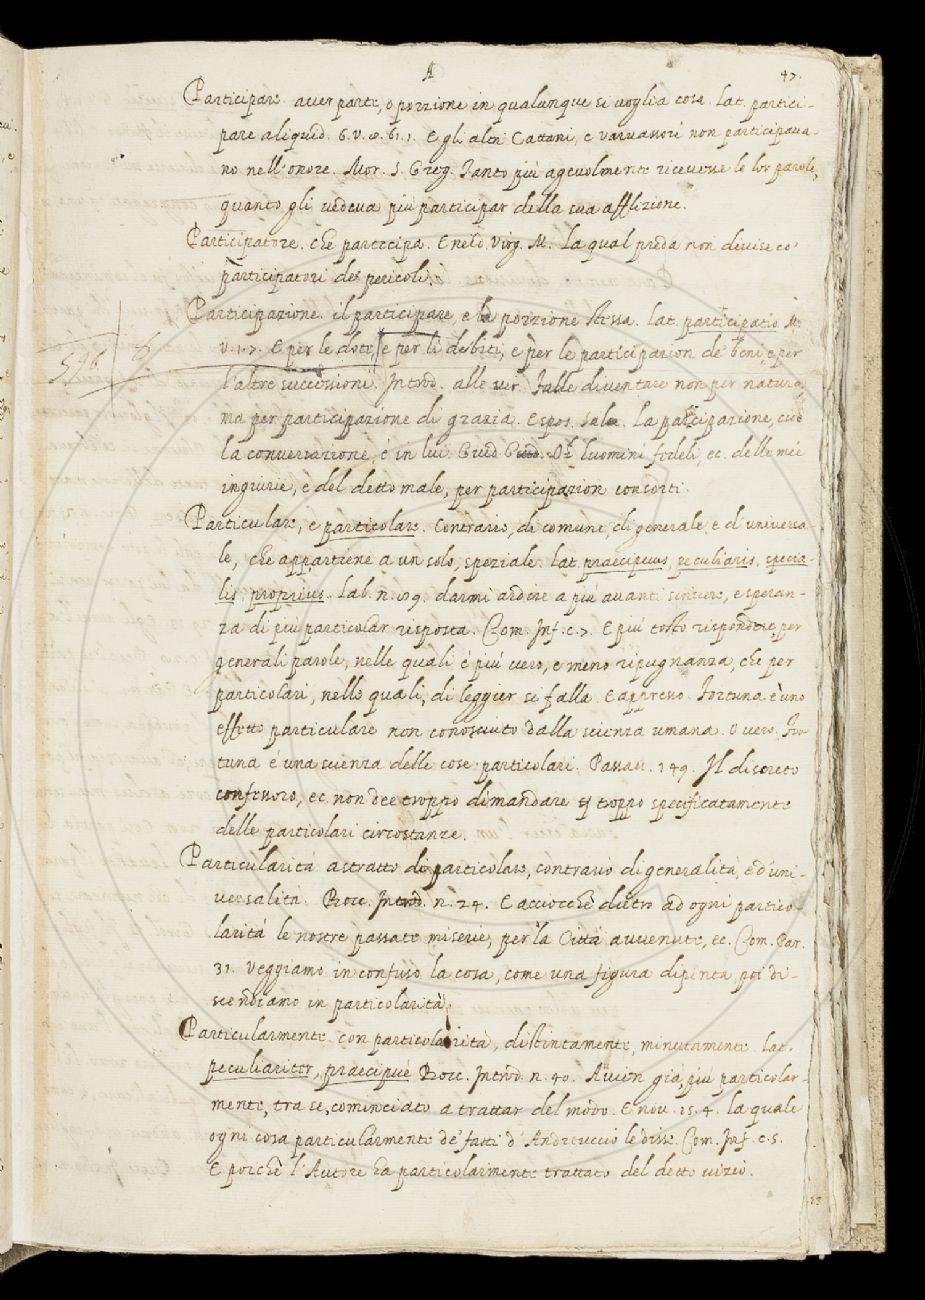 A
47.
Participare. aver parte, o porzione in qualunque si voglia cosa. Lat. partici-
pare aliquid. G. V. 8. 61. 1. E gli altri Cattani, e varvassori non participava-
no nell'onore. Mor. S. Greg. Tanto più agevolmente ricevesse le lor parole,
quanto gli vedeva più participar della sua afflizione.
Participatore. che partecipa. Eneid. Virg. M. La qual preda non divise co'
participatori de' pericoli.
Participazione. il participare, e la porzione stessa. Lat. participatio. M.
V. 1. 7. E per le dote, e per li debiti, e per le participazion de' beni, e per
l'altre successioni. Introd. alle vir. Falle diventare non per natura,
596
ma per participazione di grazia. Espos. Salm. La participazione, cioè
la conversazione, è in lui. Guid. G. Di luomini fedeli, ec. delle mie
ingiurie, e del detto male, per participazion consorti.
Particulare, e particolare. Contrario, di comune, di generale e d'universa-
le, che appartiene a un solo, speziale. Lat. praecipuus, peculiaris, specia-
lis, proprius. Lab. n. 89. darmi ardire a più avanti scrivere, e speran-
za di più particular risposta. Com. Inf. c. 7. E più tosto risponder per
generali parole, nelle quali è più vero, e meno ripugnanza, che per
particolari, nelle quali, di leggier si falla. E appresso. Fortuna è uno
effetto particulare non conosciuto dalla scienza umana. O vero. For-
tuna è una scienza delle cose particolari. Passav. 149. Il discreto
confessoro, ec. non dee troppo dimandare troppo specificatamente
delle particolari circostanze.
Particularità astratto di particolare, contrario di generalità, ed uni-
versalità. Bocc. Introd. n. 24. E acciocchè dietro ad ogni partico-
larità le nostre passate miserie, per la Città avvenute, ec. Com. Par.
31. Veggiamo in confuso la cosa, come una figura dipinta, poi di-
scendiamo in particolarità.
Particularmente. con particularità, distintamente, minutamente. Lat.
peculiariter, praecipuè. Bocc. Introd. n. 40. Avien già, più particolar-
mente, tra se, cominciato a trattar del modo. E nov. 15. 4. la quale
ogni cosa particularmente de' fatti d'Andreuccio le disse. Com. Inf. c. 5.
E perchè l'Autore ha particolarmente trattato del detto vizio.